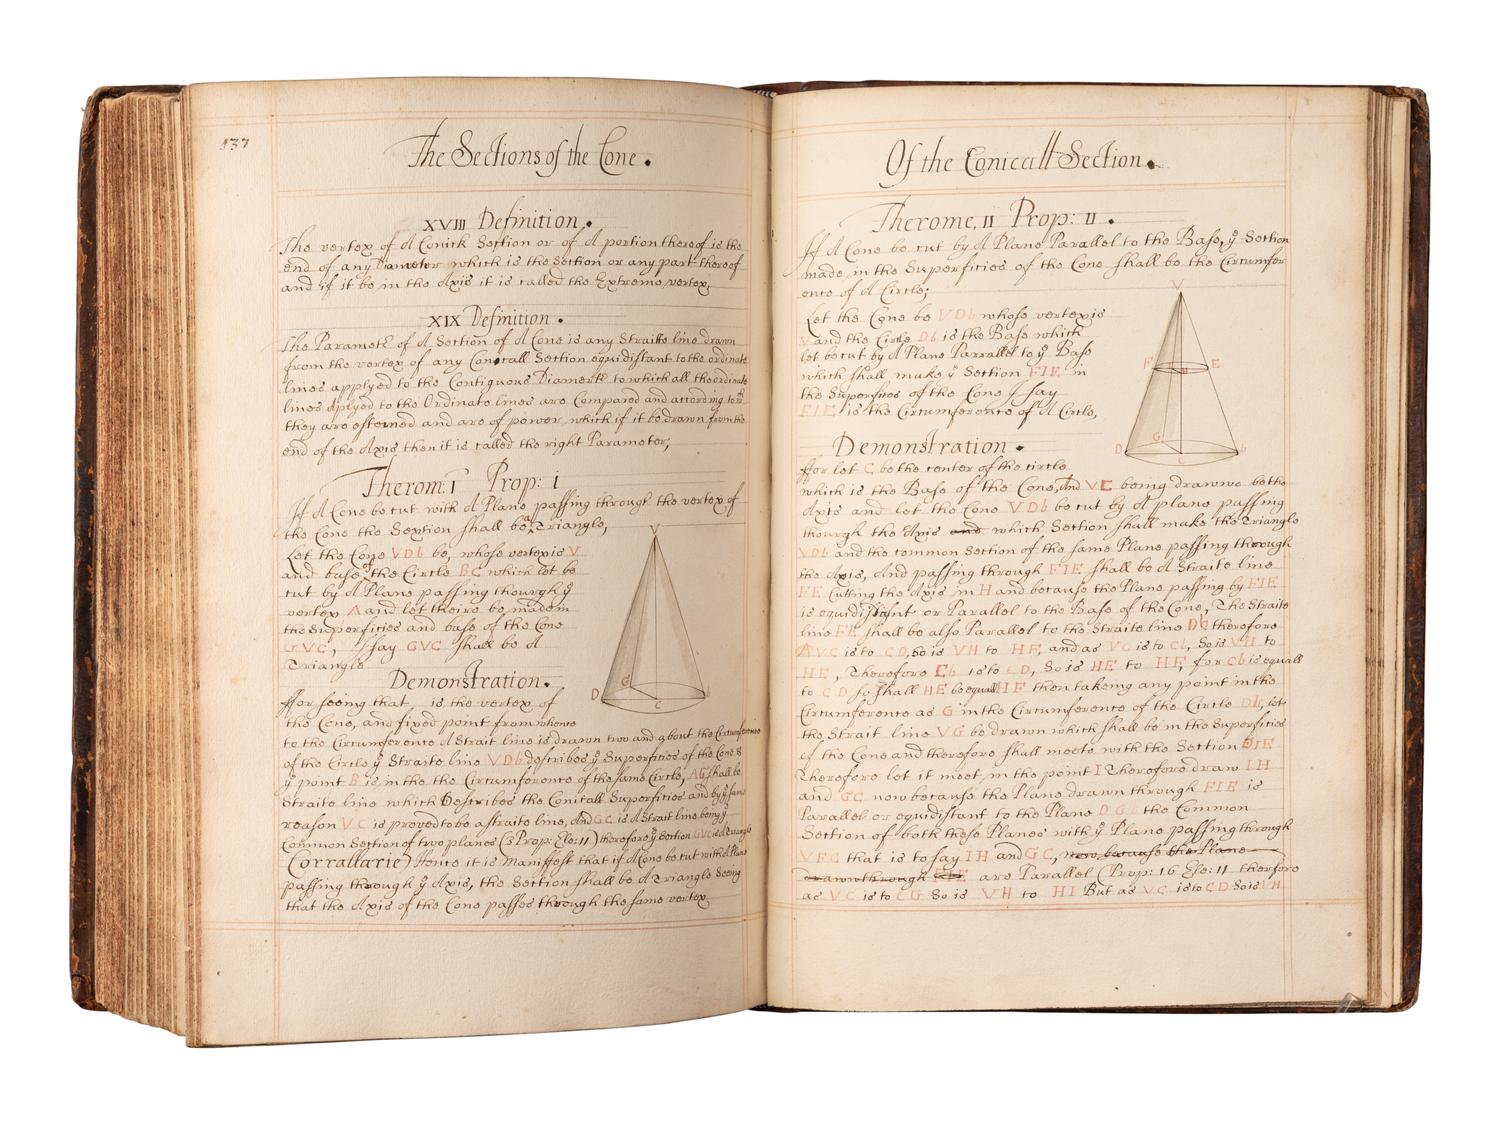 137
The Sections of the Cone.
XVIII Definition.
The vertex of A Conick Section or of A portion thereof is the
end of any Diameter which is the Section or any part thereof
and if it be in the Axis it is called the Extreme vertex,
XIX Definition.
The Paramete of A Section of A Cone is any Straite line drawn
from the vertex of any Conicall Section equidistant to the ordinate
lines applyed to the Contiguous Diamerte to which all the ordinate
lines Aplyed to the Ordinate lines are Compared and according to wch
they are esteemed and are of power, which if it be drawn from the
end of the Axis then it is called the right Parameter;
Therom: I Prop: i
If A Cone be cut with A Plane passing through the vertex of
the Cone the Sextion shall be a Triangle,
V
Let the Cone VDb be, whose vertex is V
and base of the Circle BC which let be
cut by A Plane passing thourgh ye
vertex A and let theire be made in
the Superfities and base of the Cone
GVC, I say GVC shall be A
Triangle
D G C b
Demonstration.
ffor seeing that is the vertex of
the Cone, and fixed point from whence
to the Circumference A Strait line is drawn two and about the Circumference
of the Circle ye Straite line VDb describes ye Superfities of the Cone &
ye point B is in the Circumference of the same Circle, AG shall be
Straite line which Describes the Conicall Superfities and by ye same
reason VC is proved to be a straite line, And GC is A Strait line being ye
Common Section of two planes (3 Prop: Ele: 11) therefore ye Section GVC is A Triangle
Corrallarie) Hence it is Manifest that if A Cone be cut with A Plane
passing through ye Axis, the Section shall be A Triangle Seeing
that the Axis of the Cone passes through the same vertex
Of the Conicall Section.
Therome, II Prop: II.
If A Cone be cut by A Plane Parallel to the Base, ye Section
made in the Superfities of the Cone shall be the Circumfer
ence of A Circle;
Let the Cone be VDb whose vertex is
V and the Circle Db is the Base which
let be cut by A Plane Parrallel to ye Base
which shall make ye Section FIE in
the Superfities of the Cone I say
FIE is the Circumference of A Circle,
V
F I H E
D G C b
Demonstration.
ffor let C be the center of the circle
which is the Base of the Cone, And VC being drawne be the
Axis and let the Cone VDb be cut by A plane passing
thourgh the Axis and which Section shall make the Triangle
VDb and the common Section of the same Plane passing through
the Axis, And passing through FIE shall be A Straite line
FE Cutting the Axis in H and because the Plane passing by FIE
is equidistant or Parallel to the Base of the Cone, The Straite
line FE shall be also Parallel to the Straite line Db therefore
AVC is to CD, So is VH to HF, and as VC is to Cb, So is VH to
HE, Therefore Cb is to CD, So is HE to HF, for Cb is equall
to CD so shall HE be equall HF then takeing any point in the
Circumference as G in the Circumference of the Circle Db, let
the Strait line VG be drawn which shall be in the Superfities
of the Cone and therefore shall meete with the Section FIE
Therefore let it meet in the point I Therefore draw IH
and GC now because the Plane drawn through FIE is
Parallel or equidistant to the Plane DGb the Common
Section of both these Planes with ye Plane passing through
that is to say IH and GC, now because the Plane
drawn through FIE are Parallel (Prop: 16 Ele: 11 therefore
as VC is to CG So is VH to HI But as VC is to CD So is VH